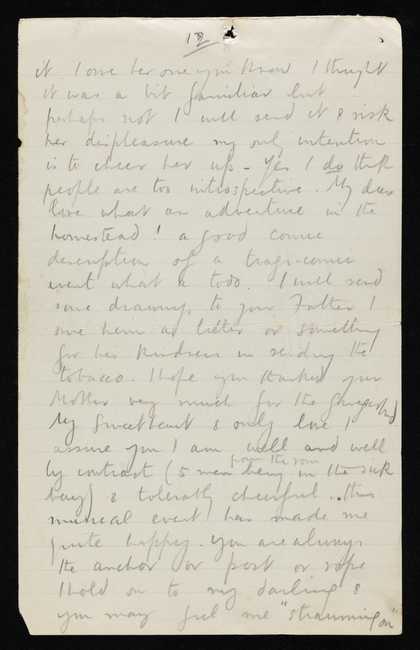 18
it I owe her one you know I thought
it was a bit familiar but
perhaps not I will send it & risk
her displeasure my only intention
is to cheer her up - Yes I do think
people are too introspective. My dear
love what an adventure in the
homestead! a good comic
description of a tragi-comic
event what a todo. I will send
some drawings to your Father I
owe him a letter or something
for his kindness in sending the
tobacco. I hope you thanked your
Mother very much for the
My Sweetheart & only love I
assure you I am well and well
by contrast (5 men being in the sick
from the room
bay) & tolerably cheerful.. this
musical event has made me
quite happy. You are always
the anchor or post or rope
I hold on to my darling &
you may feel me "straining on"